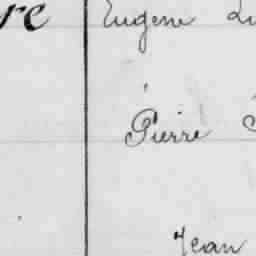 re Eugene
Pierre
Jean